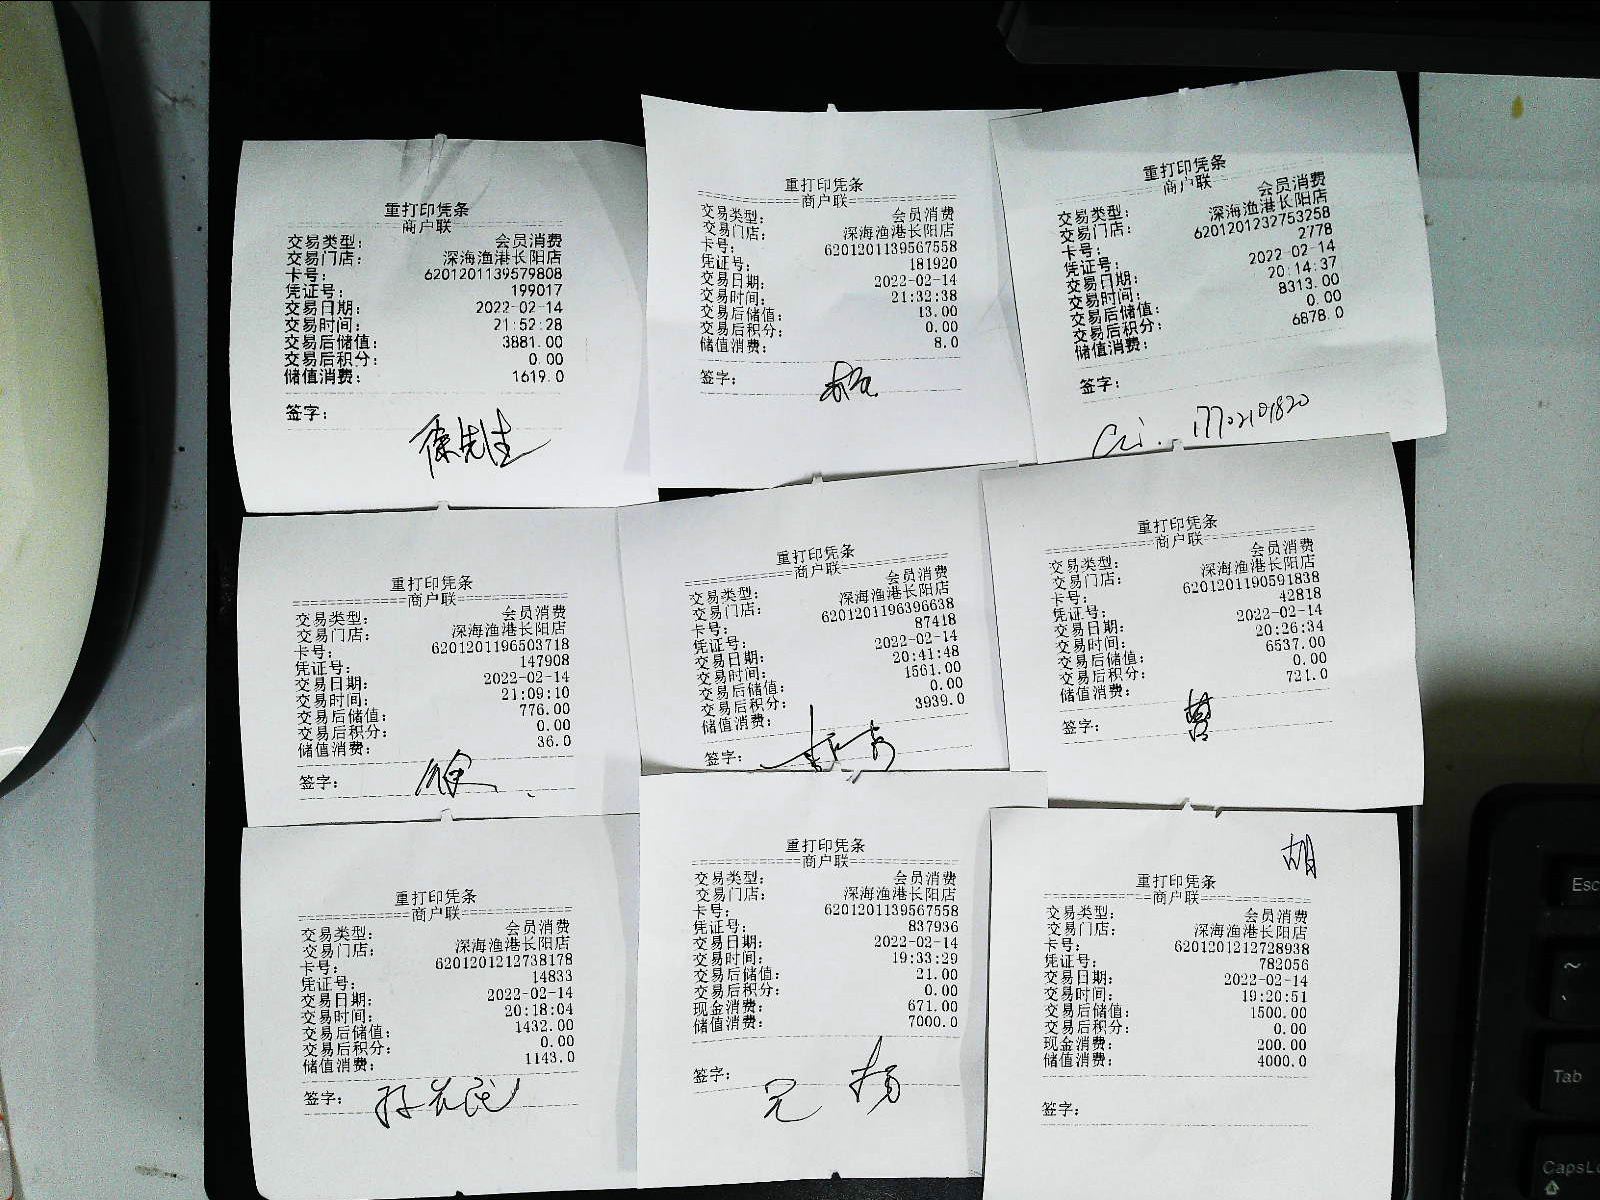 重打印凭条
商户联
交易类型: 会员消费
交易门店: 深海渔港长阳店
卡号: 6201201139579808
凭证号: 199017
交易日期: 2022-02-14
交易时间: 21:52:28
交易后储值: 3881.00
交易后积分: 0.00
储值消费: 1619.0
签字:
徐先生
重打印凭条
商户联
交易类型: 会员消费
交易门店: 深海渔港长阳店
卡号: 6201201139567558
凭证号: 181920
交易日期: 2022-02-14
交易时间: 21:32:38
交易后储值: 13.00
交易后积分: 0.00
储值消费: 8.0
签字:
重打印凭条
商户联
交易类型: 会员消费
交易门店: 深海渔港长阳店
卡号: 6201201232753258
凭证号: 2778
交易日期: 2022-02-14
交易时间: 20:14:37
交易后储值: 8313.00
交易后积分: 0.00
储值消费: 6878.0
签字:
17702101820
重打印凭条
商户联
交易类型: 会员消费
交易门店: 深海渔港长阳店
卡号: 6201201196503718
凭证号: 147908
交易日期: 2022-02-14
交易时间: 21:09:10
交易后储值: 776.00
交易后积分: 0.00
储值消费: 36.0
签字:
重打印凭条
商户联
交易类型: 会员消费
交易门店: 深海渔港长阳店
卡号: 6201201196396638
凭证号: 87418
交易日期: 2022-02-14
交易时间: 20:41:48
交易后储值: 1561.00
交易后积分: 0.00
储值消费: 3939.0
签字:
重打印凭条
商户联
交易类型: 会员消费
交易门店: 深海渔港长阳店
卡号: 6201201190591838
凭证号: 42818
交易日期: 2022-02-14
交易时间: 20:26:34
交易后储值: 6537.00
交易后积分: 0.00
储值消费: 721.0
签字:
重打印凭条
商户联
交易类型: 会员消费
交易门店: 深海渔港长阳店
卡号: 6201201212738178
凭证号: 14833
交易日期: 2022-02-14
交易时间: 20:18:04
交易后储值: 1432.00
交易后积分: 0.00
储值消费: 1143.0
签字:
重打印凭条
商户联
交易类型: 会员消费
交易门店: 深海渔港长阳店
卡号: 6201201139567558
凭证号: 837936
交易日期: 2022-02-14
交易时间: 19:33:29
交易后储值: 21.00
交易后积分: 0.00
现金消费: 671.00
储值消费: 7000.0
签字:
胡
重打印凭条
商户联
交易类型: 会员消费
交易门店: 深海渔港长阳店
卡号: 6201201212728938
凭证号: 782056
交易日期: 2022-02-14
交易时间: 19:20:51
交易后储值: 1500.00
交易后积分: 0.00
现金消费: 200.00
储值消费: 4000.0
签字:
Esc
~
Tab